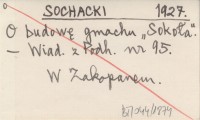 SOCHACKI 1927.
O budowę gmachu „Sokoła".
— Wiad. z Podh. nr 95.
W Zakopanem.